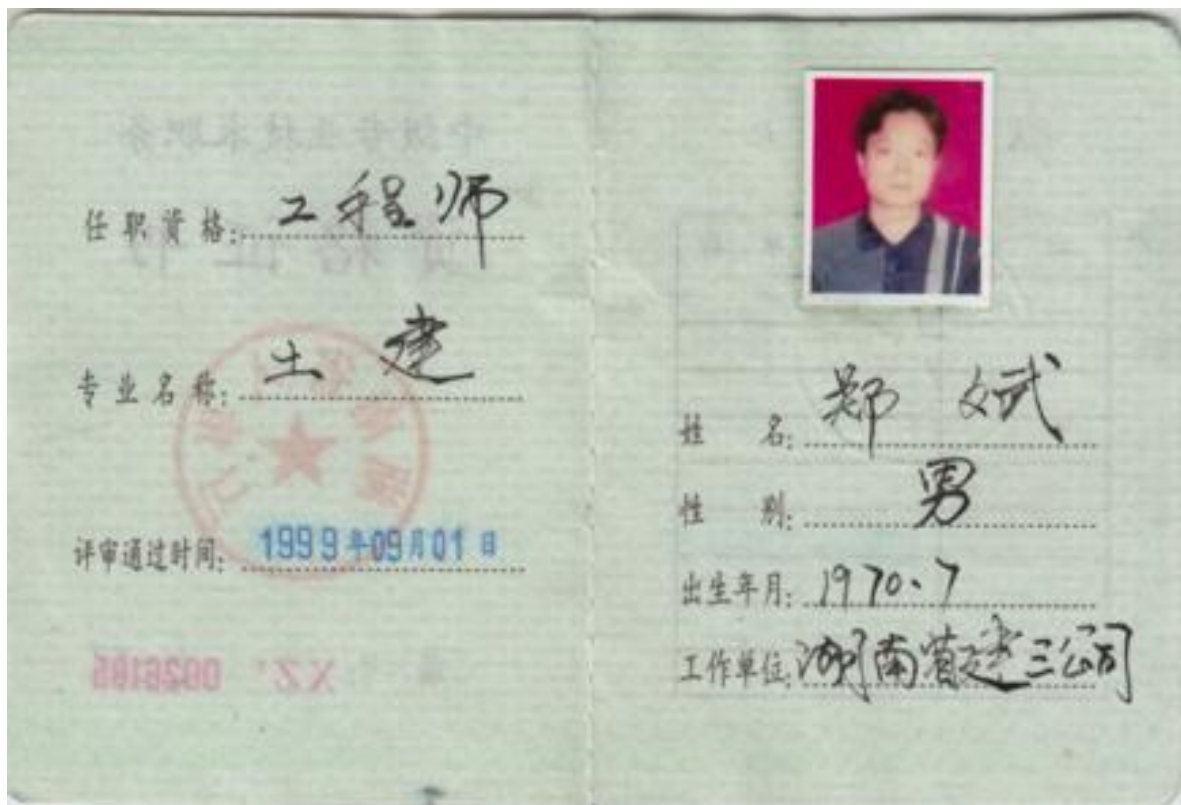 任职资格: 工程师
专业名称: 土建
评审通过时间: 1999年09月01日
姓 名: 郑斌
性 别: 男
出生年月: 1970.7
工作单位: 湖南省建三公司